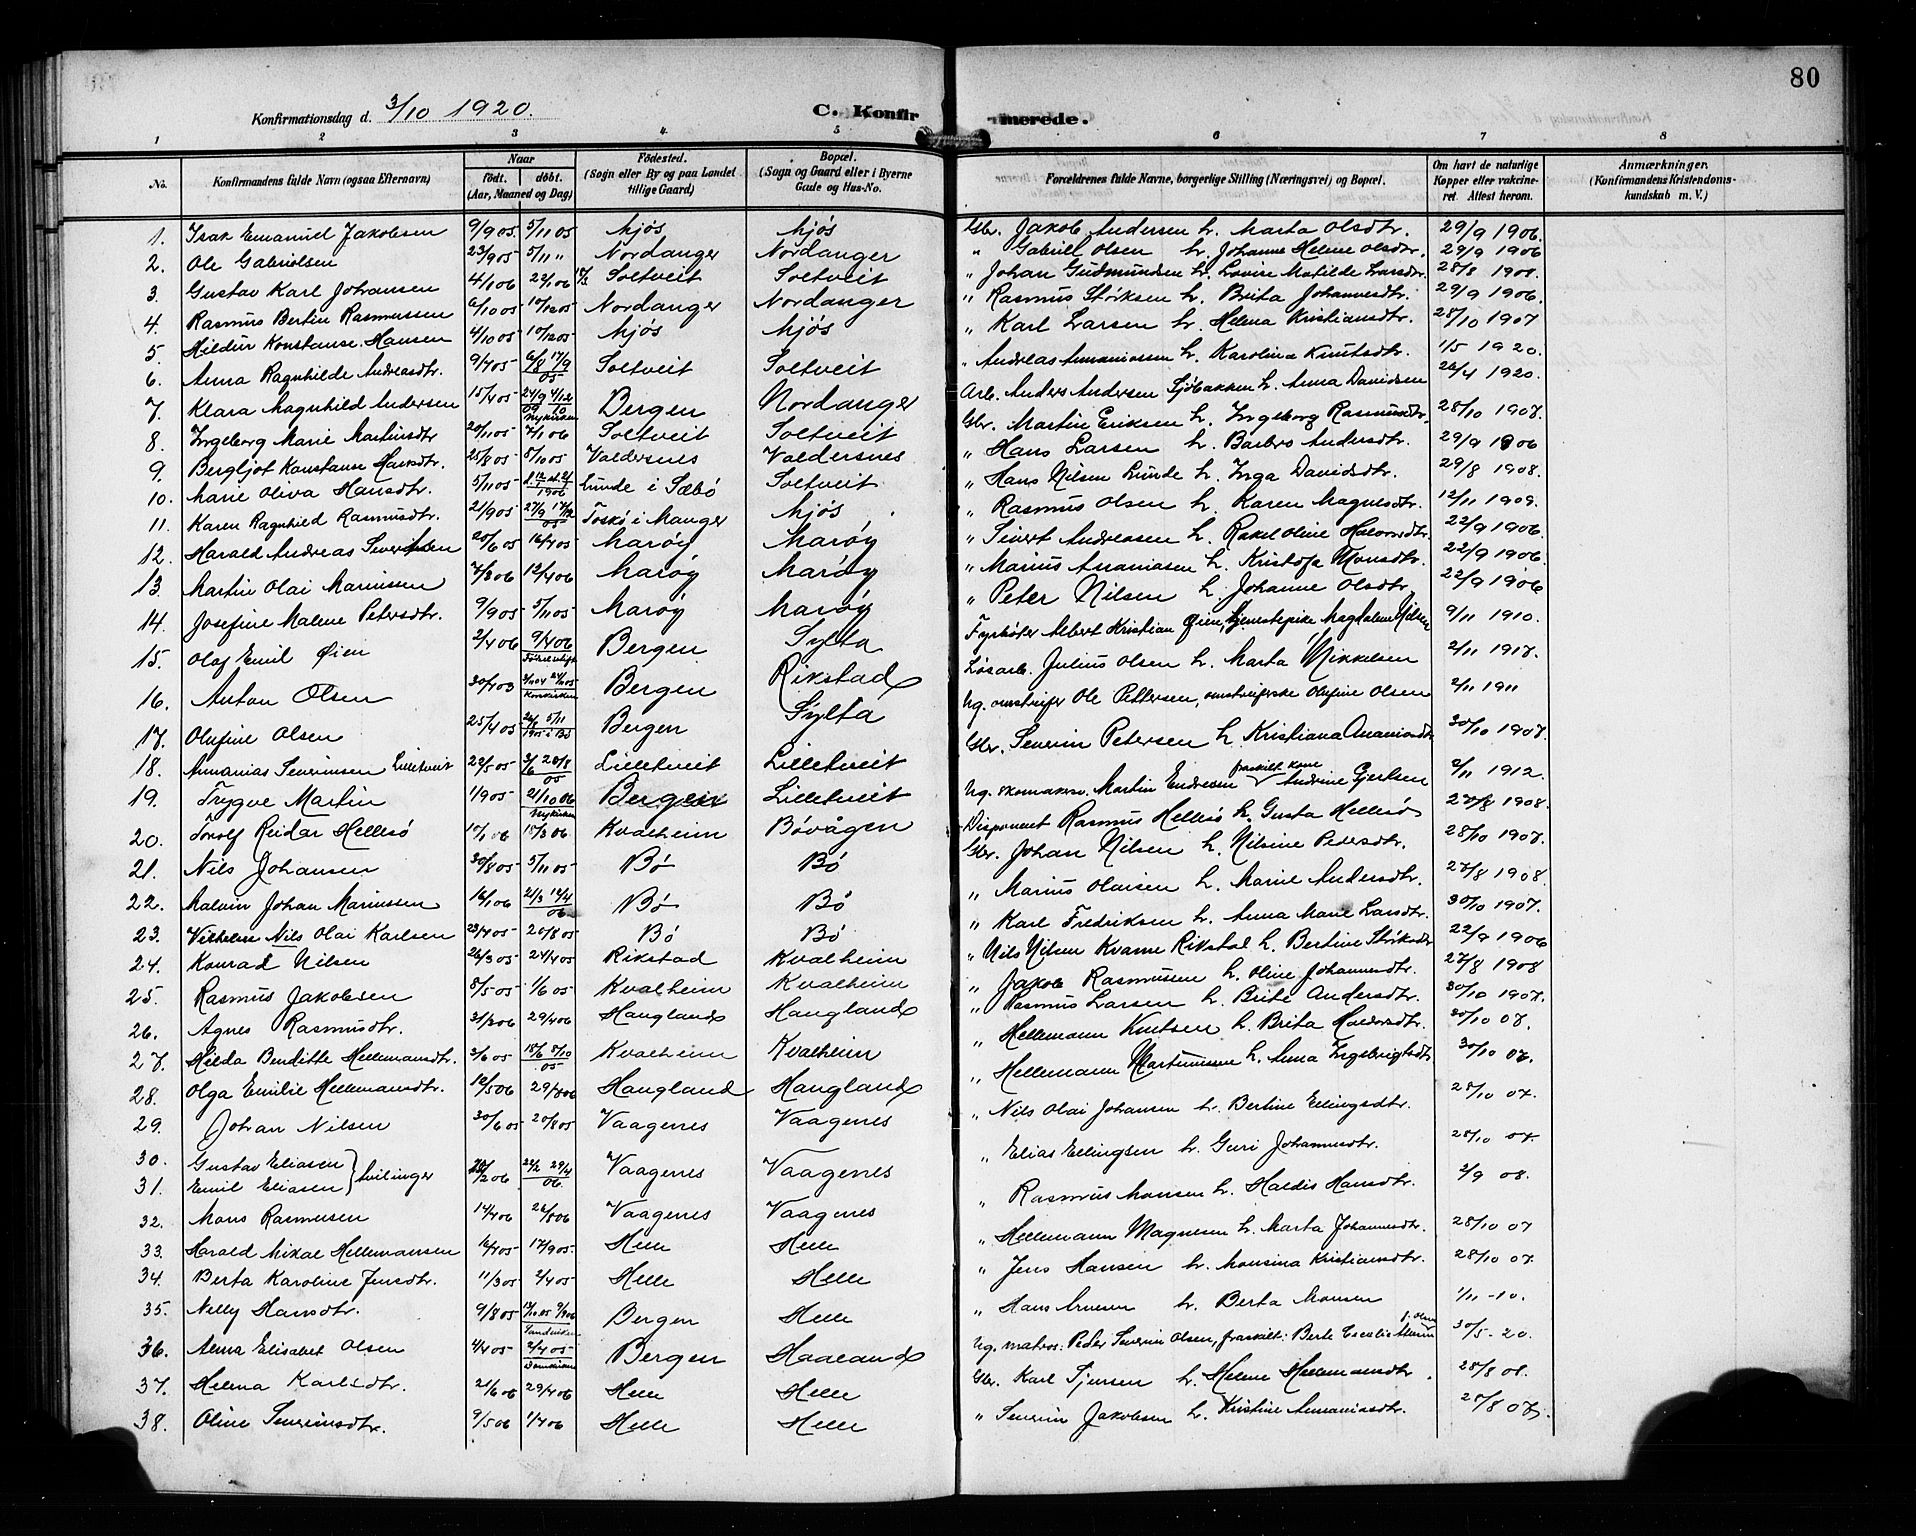 80
Konfirmationsdag d. 3/10 1920.
C. Konfirmerede.
1 2 3 4 5 6 7 8
No.
Konfirmandens fulde Navn (ogsaa Efternavn)
Naar
født. døbt.
(Aar, Maaned og Dag)
Fødested.
(Sogn eller By og paa Landet tillige Gaard)
Bopæl.
(Sogn og Gaard eller i Byerne Gade og Hus-No.
Forældrenes fulde Navne, borgerlige Stilling (Næringsvei) og Bopæl.
Om havt de naturlige Kopper eller vakcineret. Attest herom.
Anmærkninger.
(Konfirmandens Kristendomskundskab m. V.)
1. Isak Emanuel Jakobsen 9/9 05 5/11 05 Mjøs Mjøs Gbr. Jakob Andersen h. Marta Olsdtr. 29/9 1906.
2. Ole Gabrielsen 23/9 05 5/11 " Nordanger Nordanger " Gabriel Olsen h. Johanne Helene Olsdtr. 29/9 1906
3. Gustav Karl Johansen 4/1 06 Soltveit Soltveit " Johan Gudmundsen h. Lovise Matilde Larsdtr. 28/8 1908.
4. Rasmus Bertin Rasmussen 6/10 05 10/12 05 Nordanger Nordanger " Rasmus Størksen h. Brita Johannesdtr. 29/9 1906.
5. Hildur Konstanse Hansen 4/10 05 10/12 05 Mjøs Mjøs " Karl Larsen h. Helena Kristiansdtr. 28/10 1907
6. Anna Ragnhilde Andreasdtr. 9/7 05 6/8 17/9 05 Soltveit Soltveit " Andreas Annaniassen h. Karolina Knutsdtr. 1/5 1920.
7. Klara Magnhild Andersen 15/4 05 Nykirken Bergen Nordanger Arb. Anders Andersen Sjøbakken h. Anna Davidsen 26/4 1920.
8. Ingeborg Marie Martinsdtr 20/11 05 7/1 06 Soltveit Soltveit Gbr. Martin Eriksen h. Ingeborg Rasmusdtr. 28/10 1907.
9. Bergljot Konstanse Hansdtr. 25/8 05 5/10 05 Valdersnes Valdersnes " Hans Larsen h. Barbro Andersdtr. 29/9 1906
10. Marie Oliva Hansdtr. 5/11 05 1906 Lunde i Sæbø Soltveit " Hans Nilsen Lunde h. Inga Davidsdtr. 29/8 1908.
11. Karen Ragnhild Rasmusdtr. 21/9 05 27/9 17/12 05 Toskø i Manger Mjøs " Rasmus Olsen h. Karen Magnesdtr. 12/11 1909.
12. Harald Andreas Sivertsen 20/6 05 16/7 05 Marøy Marøy " Sivert Andreasen h. Rakel Oline Halvorsdtr. 22/9 1906.
13. Martin Olai Mariussen 7/3 06 12/4 06 Marøy Marøy " Marius Ananiasen h. Kristofa Monsdtr. 22/9 1906.
14. Josefine Malene Petersdtr. 9/9 05 5/11 05 Marøy Marøy " Peter Nilsen h. Johanne Olsdtr. 22/9 1906
15. Olaf Emil Øien 2/4 06 9/7 06 Bergen Sylta Fyrbøter Albert Kristian Øien, tjenestepike Magdalene Nilsen 9/11 1910.
16. Anton Olsen 30/7 03 Korskirken Bergen Rikstad Løsarb. Julius Olsen h. Marta Mikkelsen 2/11 1917.
17. Olufine Olsen 25/4 05 26/8 5/11 1905 i Bø Bergen Sylta Ug. omstreifer Ole Pettersen, omstreiferske Olufine Olsen 2/11 1911
18. Annanias Severinsen Lilletveit 22/5 05 2/6 20/8 05 Lilletveit Lilletveit Gbr. Severin Petersen h. Kristiana Ananiasdtr. 30/10 1907.
19. Trygve Martin 1/9 05 21/10 06 Nykirken Bergen Lilletveit Ug. skomakersv. Martin Endresen fraskilt kone Andrine Gjertsen 2/11 1912.
20. Torolf Reidar Hellesø 10/1 06 15/3 06 Kvalheim Bøvågen Disponent Rasmus Hellesø h. Gusta Hellesø 27/8 1908.
21. Nils Johansen 30/8 05 5/11 05 Bø Bø Gbr. Johan Nilsen h. Nilsine Petersdtr. 28/10 1907.
22. Malvin Johan Mariussen 16/1 06 21/3 17/4 06 Bø Bø " Marius Olaisen h. Marie Andersdtr. 27/8 1908.
23. Vilhelm Nils Olai Karlsen 23/7 05 20/8 05 Bø Bø " Karl Fredriksen h. Anna Marie Larsdtr. 30/10 1907.
24. Konrad Nilsen 26/3 05 24/4 05 Rikstad Kvalheim " Nils Nilsen Kvame Rikstad h. Bertine Størksdtr 22/9 1906
25. Rasmus Jakobsen 8/5 05 1/6 05 Kvalheim Kvalheim " Jakob Rasmussen h. Oline Johannesdtr. 27/8 1908
26. Agnes Rasmusdtr. 31/3 06 29/4 06 Haugland Haugland " Rasmus Larsen h. Brite Andersdtr. 30/10 1907.
27. Hilda Benditte Hellemansdtr. 3/6 05 18/6 8/10 05 Kvalheim Kvalheim " Hellemann Knutsen h. Brita Haldorsdtr. 30/10 07.
28. Olga Emilie Hellemansdtr. 10/5 06 29/7 06 Haugland Haugland " Hellemann Martinussen h. Anna Ingebrigtsdtr 30/10 07.
29. Johan Nilsen 30/6 05 20/8 05 Vaagenes Vaagenes " Nils Olai Johansen h. Bertine Ellingsdtr. 28/10 07.
30. Gustav Eliasen
31. Emil Eliasen } tvilinger 20/2 06 22/2 29/4 06 Vaagenes Vaagenes " Elias Ellingsen h. Guri Johannesdtr. 28/10 07.
32. Mons Rasmussen 14/7 06 26/8 06 Vaagenes Vaagenes " Rasmus Monsen h. Haldis Hansdtr. 2/9 08.
33. Harald Mikal Hellemansen 16/7 05 17/9 05 Helle Helle " Hellemann Magnesen h. Marta Johannesdtr. 28/10 07
34. Berta Karoline Jensdtr. 11/3 05 2/4 05 Helle Helle " Jens Hansen h. Monsina Kristiansdtr. 28/10 07.
35. Nelly Hansdtr. 9/8 05 Sandviken Bergen Helle " Hans Arnesen h. Berta Monsen 1/11 - 10.
36. Anna Elisabet Olsen 4/4 05 2/7 05 Domkirken Bergen Haaland Ug. matros: Peder Severin Olsen, fraskilt: Berte 30/5 - 20.
37. Helena Karlsdtr. 21/6 06 29/7 06 Helle Helle Gbr. Karl h. Helene Hellemansdtr. 28/8 08.
38. Oline Severinsdtr. 9/5 06 1/7 06 Helle Helle " Severin Jakobsen h. Kristine Annaniasdtr. 28/8 07.